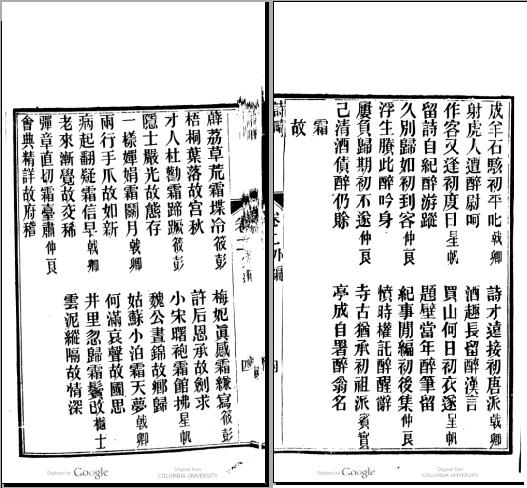 成羊石駭初平叱戟卿　詩才遠接初唐派戟卿
射虎人遭醉尉呵　酒趣長留醉漢言
作客又逢初度日星帆　買山何日初衣遂星帆
留詩自紀醉游蹤　題壁當年醉筆留
久別歸如初到客仲良　紀事閒編初後集仲良
浮生賸此醉吟身　憤時權託醉醒辭
屢負歸期初不遂仲良　寺古猶承初祖派賓賢
己清酒債醉仍賒　亭成自署醉翁名
霜
故
薜荔草荒霜堞冷筱彭　梅妃眞感霜縑寫筱彭
梧桐葉落故宮秋　許后恩承故劍求
才人杜勸霜蹄蹶筱彭　小宋曙袍霜館拂星帆
隱士嚴光故態存　魏公晝錦故鄉歸
一樣嬋娟霜鬭月戟卿　姑蘇小泊霜天夢戟卿
兩行手爪故如新　何滿哀聲故國思
病起翻疑霜信早戟卿　井里忽歸霜鬢改樾士
老來漸覺故交稀　雲泥縱隔故情深
彈章直切霜臺肅仲良
會典精詳故府稽
Digitized by Google
Original from
COLUMBIA UNIVERSITY
Digitized by Google
Original from
COLUMBIA UNIVERSITY